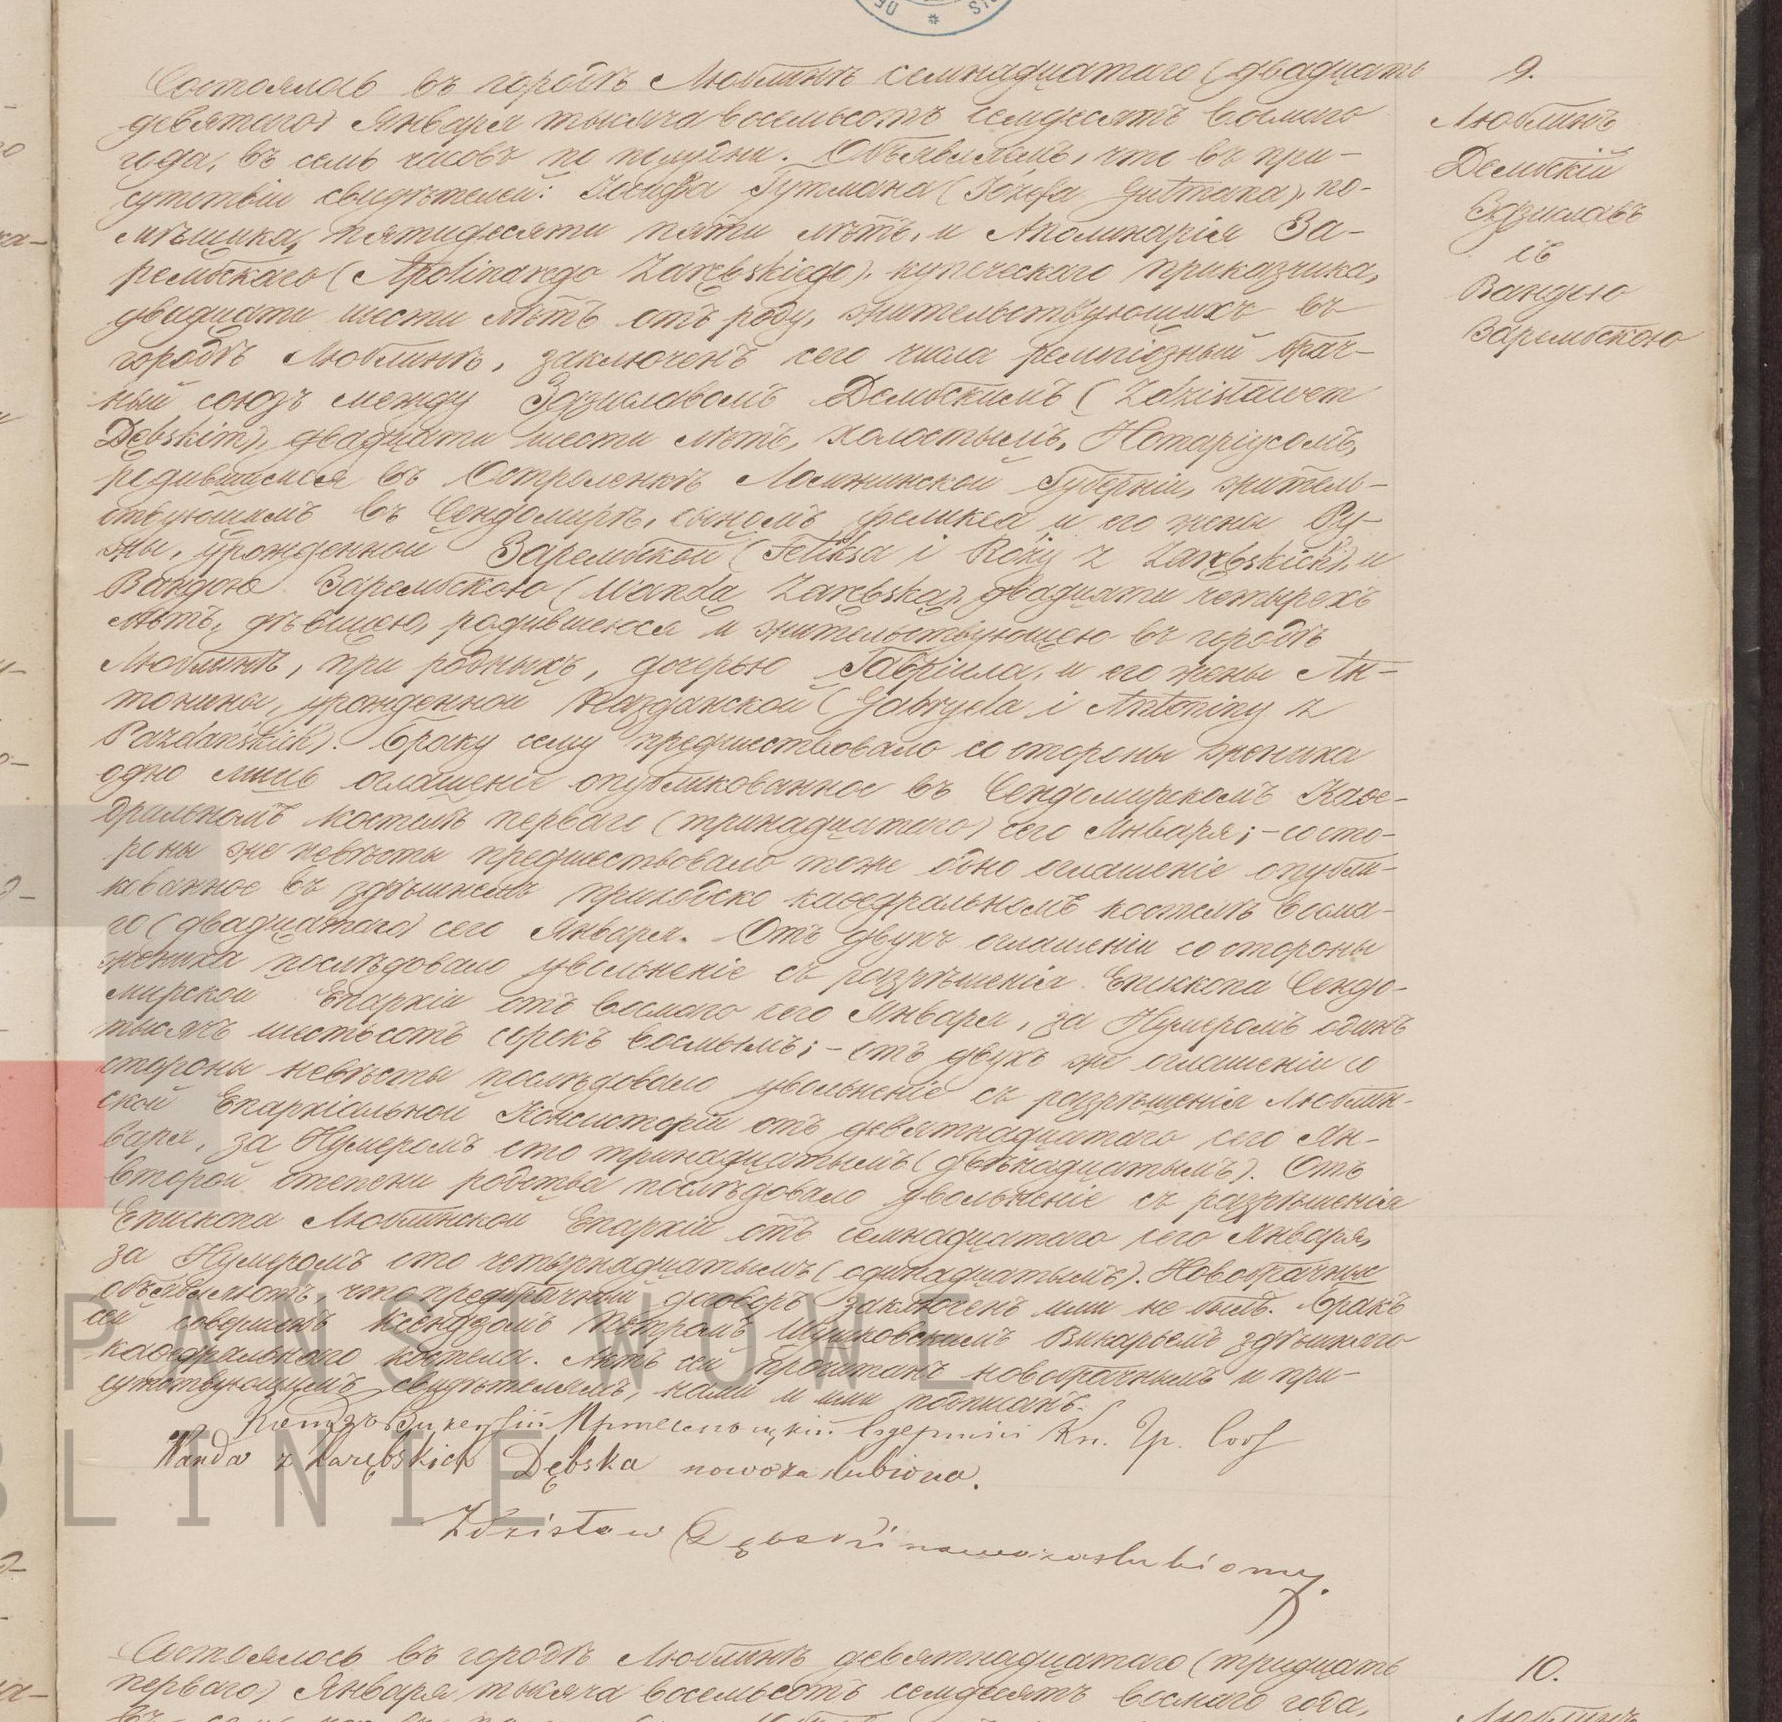 Состоялось въ городѣ Люблинѣ семнадцатаго (двадцать
девятаго) Января тысяча восемьсотъ семдесятъ восмаго
года, въ семь часовъ по полудни. Объявляемъ, что въ при-
сутствіи свидѣтелей: Іосифа Гутмана (Józefa Gutmana), по-
мѣщика, пятидесяти пяти лѣтъ, и Аполинарія За-
рембскаго (Apolinarego Zarębskiego), купеческаго приказчика,
двадцати шести лѣтъ отъ роду, жительствующихъ въ
городѣ Люблинѣ, заключенъ сего числа религіозный брач-
ный союзъ между Здзиславомъ Дембскимъ (Zdzisławem
Dębskim), двадцати шести лѣтъ, холостымъ, Нотаріусомъ,
родившимся въ Остроленкѣ Ломжинской Губерніи, житель-
ствующимъ въ Сендомирѣ, сыномъ Феликса и его жены Ру-
жи, урожденной Зарембской (Feliksa i Róży z Zarębskich), и
Вандою Зарембскою (Wandą Zarębską), двадцати четырехъ
лѣтъ, дѣвицею, родившеюся и жительствующею въ городѣ
Люблинѣ, при родныхъ, дочерью Гавріила, и его жены Ан-
тонины, урожденной Паздзнской (Gabryela i Antoniny z
Pazdańskich). Браку сему предшествовало со стороны жениха
одно лишь оглашеніе опубликованное въ Сендомирскомъ Каѳе-
дральномъ костелѣ перваго (тринадцатаго) сего Января; - со сто-
роны же невѣсты предшествовало тоже одно оглашеніе опубли-
кованное въ здѣшнемъ приходско каѳедральномъ костелѣ восма-
го (двадцатаго) сего Января. Отъ двухъ оглашеніи со стороны
жениха послѣдовало увольненіе съ разрѣшенія Епископа Сендо-
мирской Епархіи отъ восмаго сего Января, за Нумеромъ одинъ
тысячъ шестьсотъ сорокъ восмымъ; - отъ двухъ же оглашеніи со
стороны невѣсты послѣдовало увольненіе съ разрѣшенія Люблин-
ской Епархіальной Консисторіи отъ девятнадцатаго сего Ян-
варя, за Нумеромъ сто тринадцатымъ (двѣнадцатымъ). Отъ
второй степени родства послѣдовало увольненіе съ разрѣшенія
Епископа Люблинской Епархіи отъ семнадцатаго сего Января,
за Нумеромъ сто четырнадцатымъ (одинадцатымъ). Новобрачные
объявляютъ что предбрачный договоръ заключенъ ими не былъ. Бракъ
сей совершенъ Ксендзомъ Петромъ Викарьемъ здѣшняго
каѳедральнаго костела. Актъ сей прочитанъ новобрачнымъ и при-
сутствующимъ свидѣтелямъ, нами и ими подписанъ.
Ксендзъ
Wanda z Zarębskich Dębska nowozaślubiona.
Zdzisław Dębski nowozaślubiony.
9.
Люблинъ
Дембскій
Здзиславъ
съ
Вандою
Зарембскою
Состоялось въ городѣ Люблинѣ девятнадцатаго (тридцать
перваго) Января тысяча восемьсотъ семдесятъ восмаго года,
10.
Люблинъ
PAŃSTWOWE
BLINIE